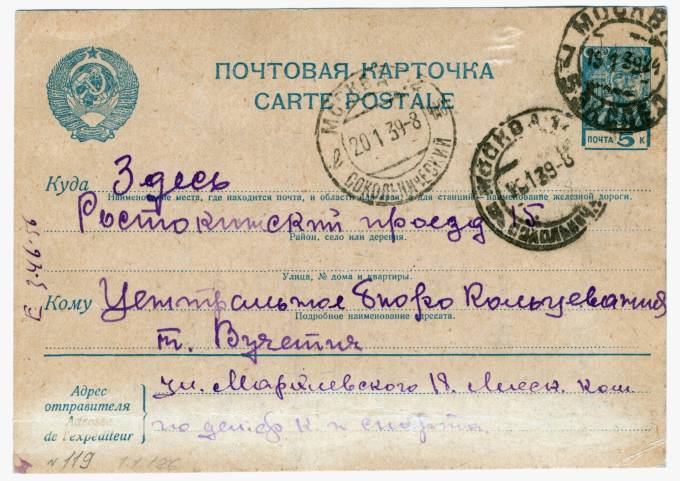 ПОЧТОВАЯ КАРТОЧКА
CARTE POSTALE
МОСКВА
13 1 39 24
ПОЧТА 5 К
МОСКВА
20 1 39-8
СОКОЛЬНИЧЕСКИЙ
МОСКВА
1 39-8
Куда Здесь
Наименование места, где находится почта, и области или края, а для станции — наименование железной дороги.
Ростокинский проезд 15.
Район, село или деревня.
Улица, № дома и квартиры.
Кому Центральное Бюро Кольцевания
Подробное наименование адресата.
т. Вучетич
Адрес
отправителя
Adresse
de l'expéditeur
ул. 18. Моск. ком.
по дел. ф. к. и спорта.
№ 119